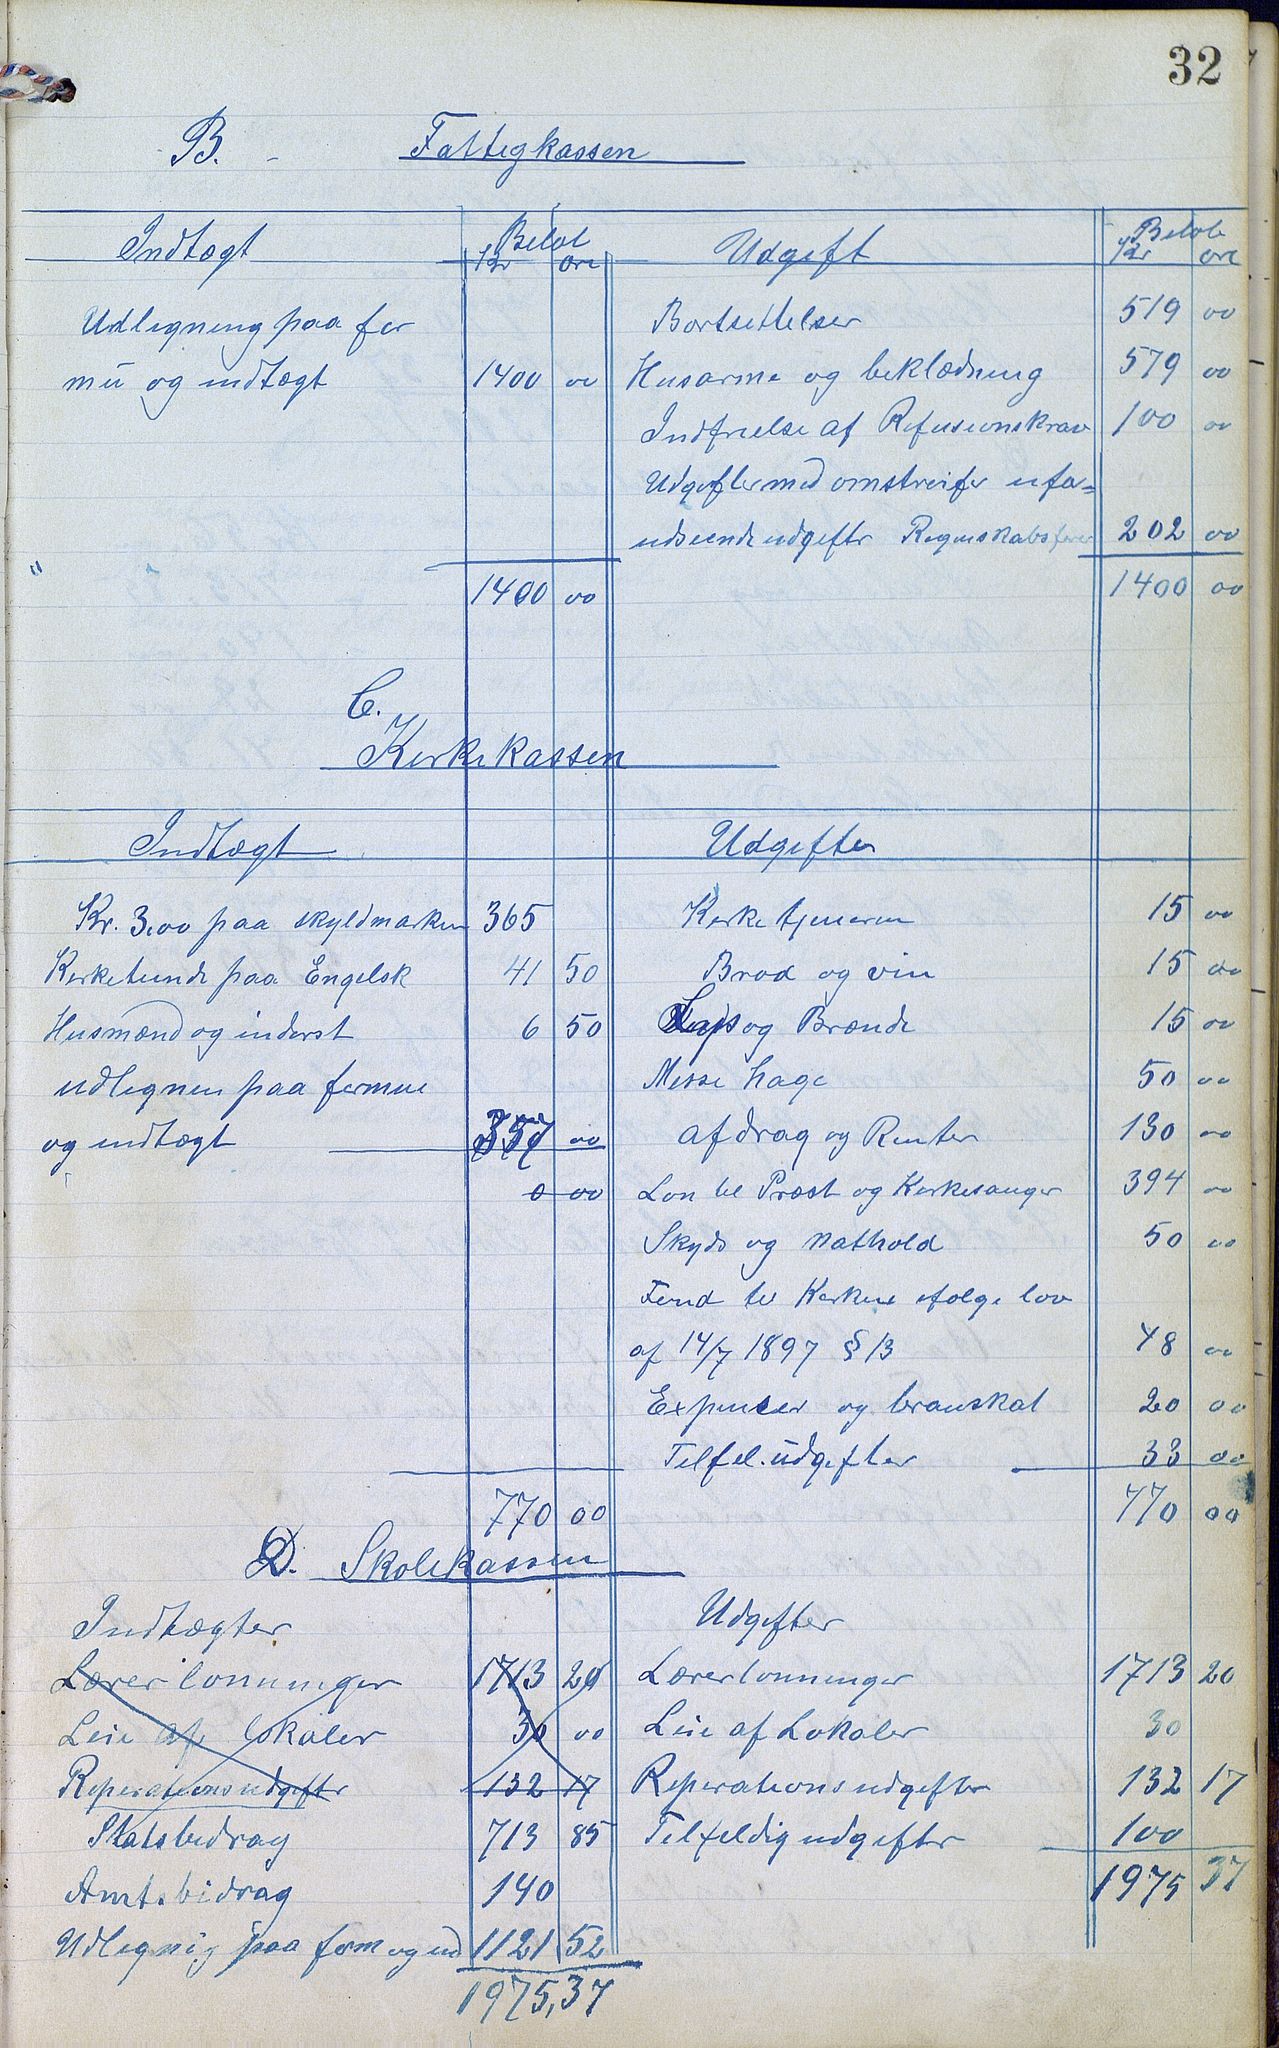 32
B. - Fattigkassen
Indtægt Beløb Udgift Beløb
Kr øre Kr øre
Udligning paa for Bortsettelser 519 00
mü og indtægt 1400 00 Husarme og beklædning 579 00
Indfrielse af Refusionskrav 100 00
Udgifter med omstreifer ufor=
udseende udgiftr Regnskabsfører 202 00
1400 00 1400 00
C.
Kirkekassen
Indtægt Udgifter
Kr. 3.00 paa skyldmarken 365 Kirketjeneren 15 00
Kirketiende paa Engelsk 41 50 Brød og vin 15 00
Husmænd og inderst 6 50 Lys og Brænde 15 00
udlignen paa formue Messe hage 50 00
og indtægt 357 00 afdrag og Renter 130 00
0 00 Løn til Præst og Kirkesanger 394 00
Skyds og Nathold 50 00
Fond til Kirken ifølge lov
af 14/7 1897 § 13 48 00
Expenser og branskat 20 00
Tilfel. udgifter 33 00
770 00 770 00
D. Skolekassen
Indtægter Udgifter
Lærerlønninger 1713 20 Lærerlønninger 1713 20
Leie af lokaler 30 00 Leie af Lokaler 30
Reperationsudgiftr 132 17 Reperationsudgiftr 132 17
Statsbidrag 713 85 Tilfeldig udgifter 100
Amtsbidrag 140 1975 37
Udlignig paa form og ind 1121 52
1975,37